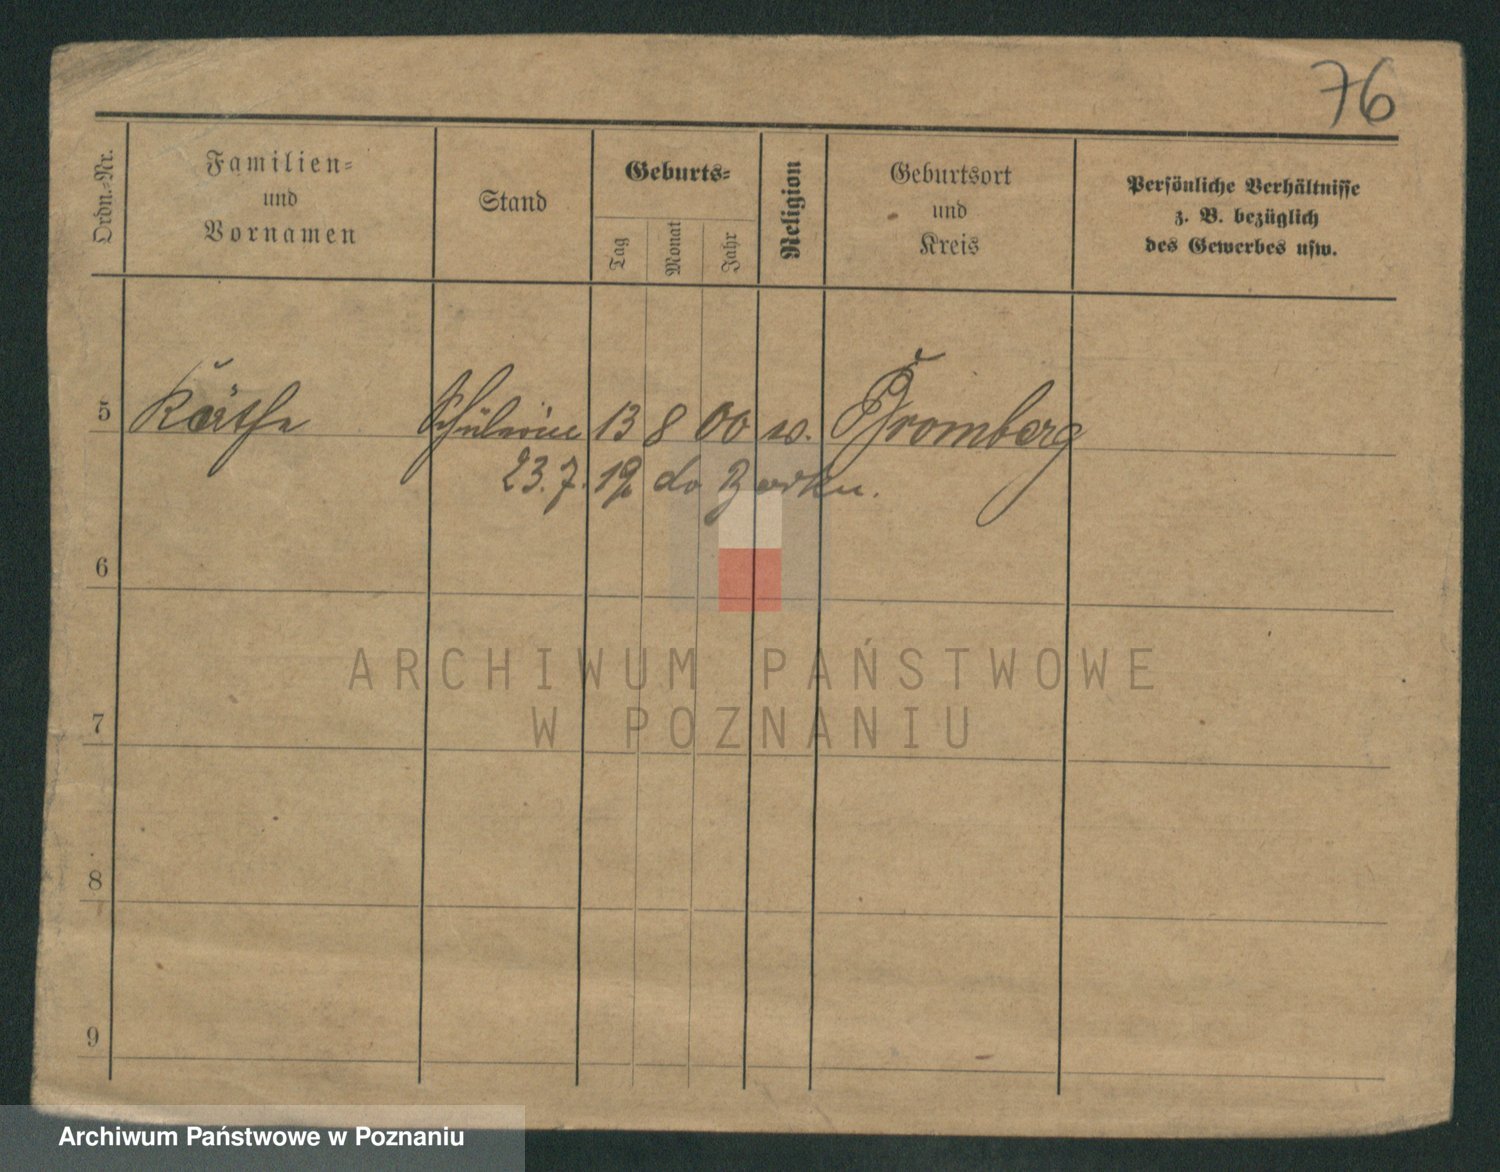 76
Ordn.=Nr.
Familien=
und
Vornamen
Stand
Geburts=
Tag
Monat
Jahr
Religion
Geburtsort
und
Kreis
Persönliche Verhältnisse
z. B. bezüglich
des Gewerbes usw.
5 Käthe Schülerin 13 8 00 Bromberg
23.7.19 do
6
7
8
9
ARCHIWUM PAŃSTWOWE
W POZNANIU
Archiwum Państwowe w Poznaniu